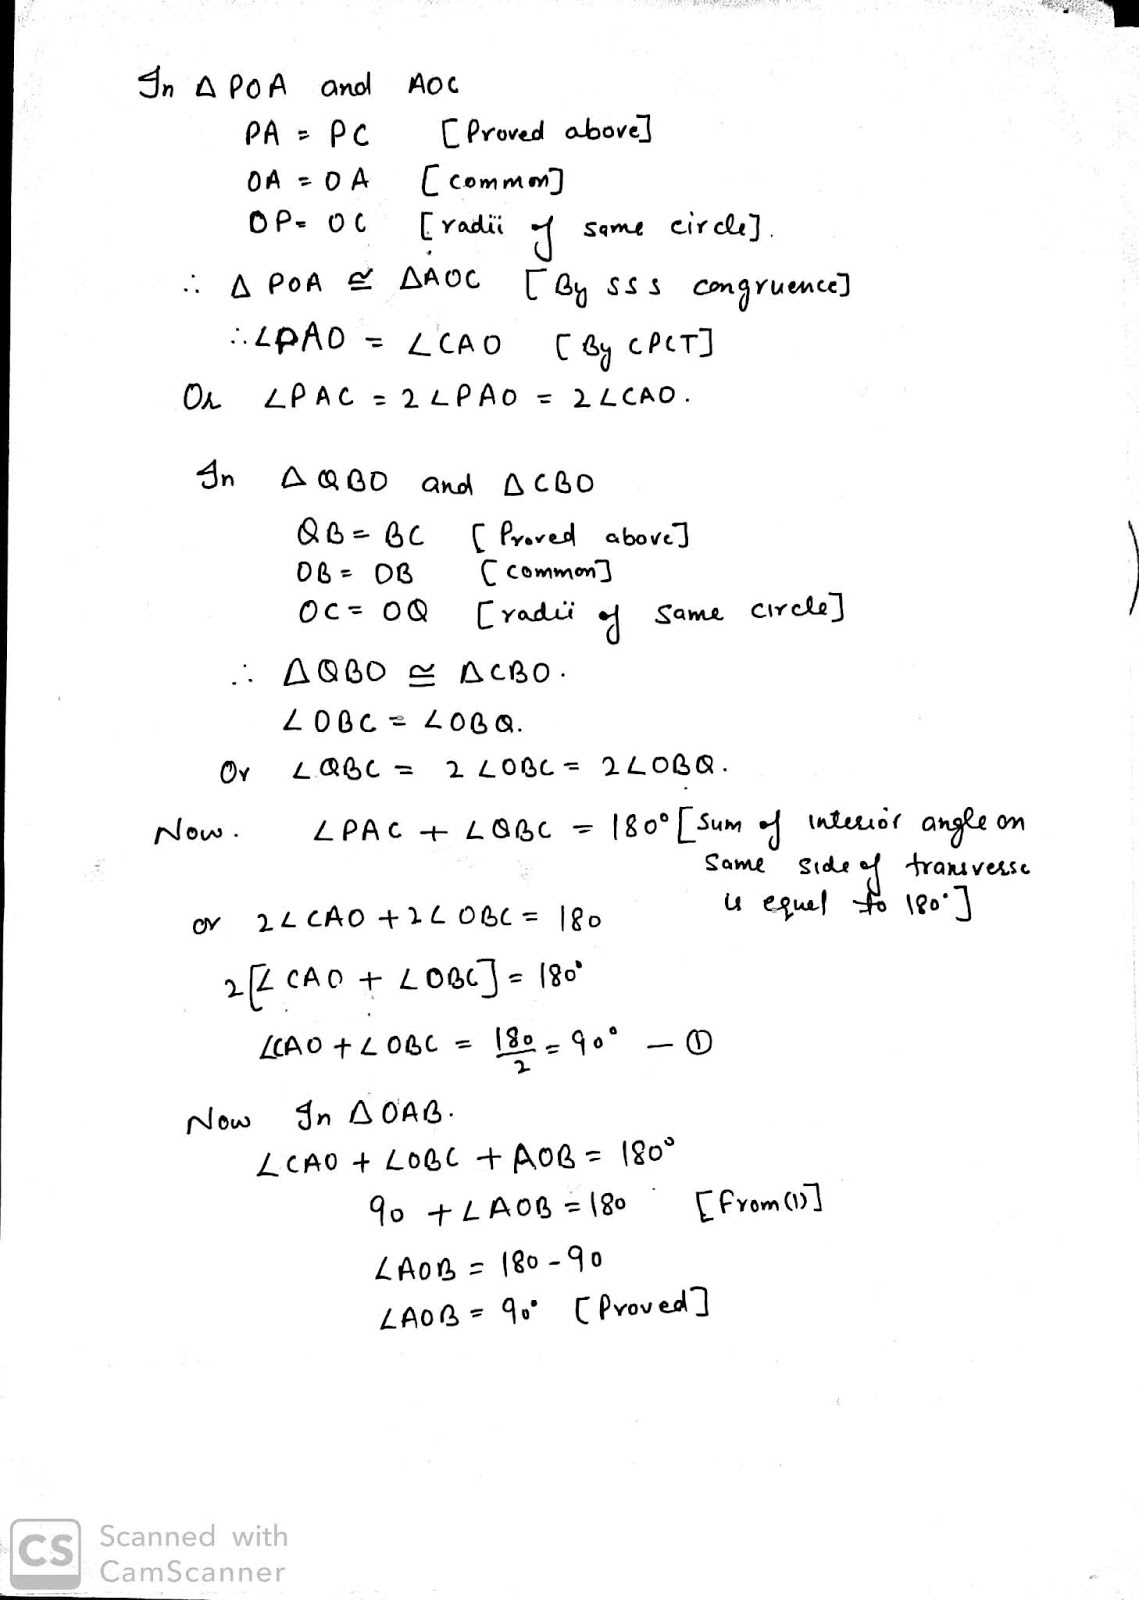 In Δ POA and AOC
PA = PC [Proved above]
OA = OA [common]
OP = OC [radii of same circle].
∴ Δ POA ≅ ΔAOC [By SSS congruence]
∴ ∠PAO = ∠CAO [By CPCT]
Or ∠PAC = 2∠PAO = 2∠CAO.
In ΔQBO and ΔCBO
QB = BC [Proved above]
OB = OB [common]
OC = OQ [radii of same circle]
∴ ΔQBO ≅ ΔCBO.
∠OBC = ∠OBQ.
Or ∠QBC = 2∠OBC = 2∠OBQ.
Now. ∠PAC + ∠QBC = 180° [Sum of interior angle on
same side of transverse
is equal to 180°]
or 2∠CAO + 2∠OBC = 180
2[∠CAO + ∠OBC] = 180°
∠CAO + ∠OBC = 180/2 = 90° — ①
Now In ΔOAB.
∠CAO + ∠OBC + AOB = 180°
90 + ∠AOB = 180 [From (1)]
∠AOB = 180 - 90
∠AOB = 90° [Proved]
CS Scanned with
CamScanner